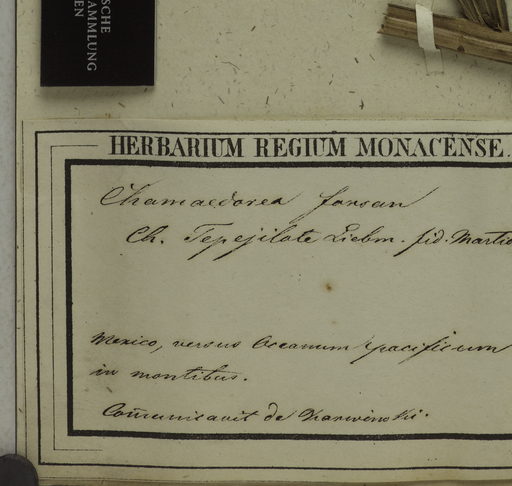 SCHE
AMMLUNG
EN
HERBARIUM REGIUM MONACENSE.
Chamaedorea forsan
Ch. Tepejilote Liebm. fid. Martio
Mexico, versus Oceanum pacificum
in montibus.
Com̄unicavit de Karwinski.